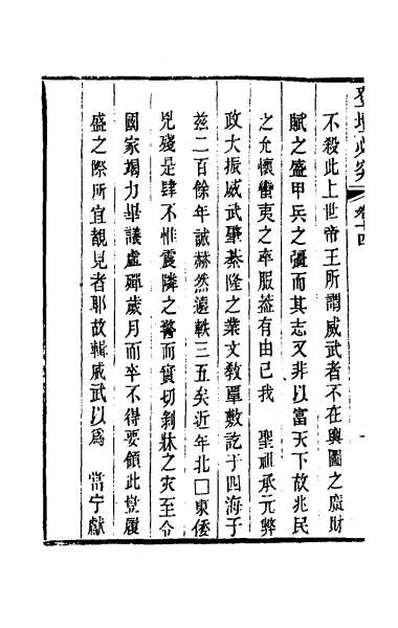 登壇必究 卷十四
不殺此上世帝王所謂威武者不在輿圖之廣財
賦之盛甲兵之彊而其志又非以富天下故兆民
之允懷蠻夷之率服蓋有由已我 聖祖承元弊
政大振威武肇基隆之業文敎覃敷訖于四海于
茲二百餘年誠赫然遠軼三五矣近年北□東倭
兇殘是肆不惟震隣之警而實切剝牀之灾至令
國家竭力畢議虛殫歲月而卒不得要領此豈履
盛之際所宜覩見者耶故輯威武以爲 當宁獻